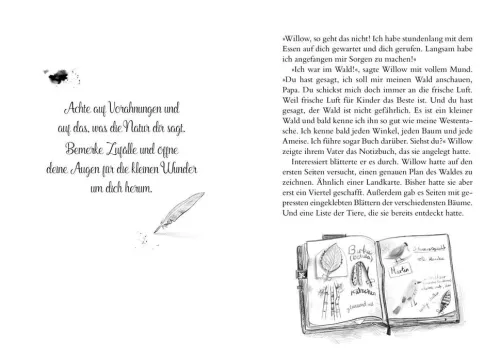 Achte auf Vorahnungen und
auf das, was die Natur dir sagt.
Bemerke Zufälle und öffne
deine Augen für die kleinen Wunder
um dich herum.
»Willow, so geht das nicht! Ich habe stundenlang mit dem
Essen auf dich gewartet und dich gerufen. Langsam habe
ich angefangen mir Sorgen zu machen!«
»Ich war im Wald!«, sagte Willow mit vollem Mund.
»Du hast gesagt, ich soll mir meinen Wald anschauen,
Papa. Du schickst mich doch immer an die frische Luft.
Weil frische Luft für Kinder das Beste ist. Und du hast
gesagt, der Wald ist nicht gefährlich. Es ist ein kleiner
Wald und bald kenne ich ihn so gut wie meine Westenta-
sche. Ich kenne bald jeden Winkel, jeden Baum und jede
Ameise. Ich führe sogar Buch darüber. Siehst du?« Willow
zeigte ihrem Vater das Notizbuch, das sie angelegt hatte.
Interessiert blätterte er es durch. Willow hatte auf den
ersten Seiten versucht, einen genauen Plan des Waldes zu
zeichnen. Ähnlich einer Landkarte. Bisher hatte sie aber
erst ein Viertel geschafft. Außerdem gab es Seiten mit ge-
pressten eingeklebten Blättern der verschiedensten Bäume.
Und eine Liste der Tiere, die sie bereits entdeckt hatte.
Birke